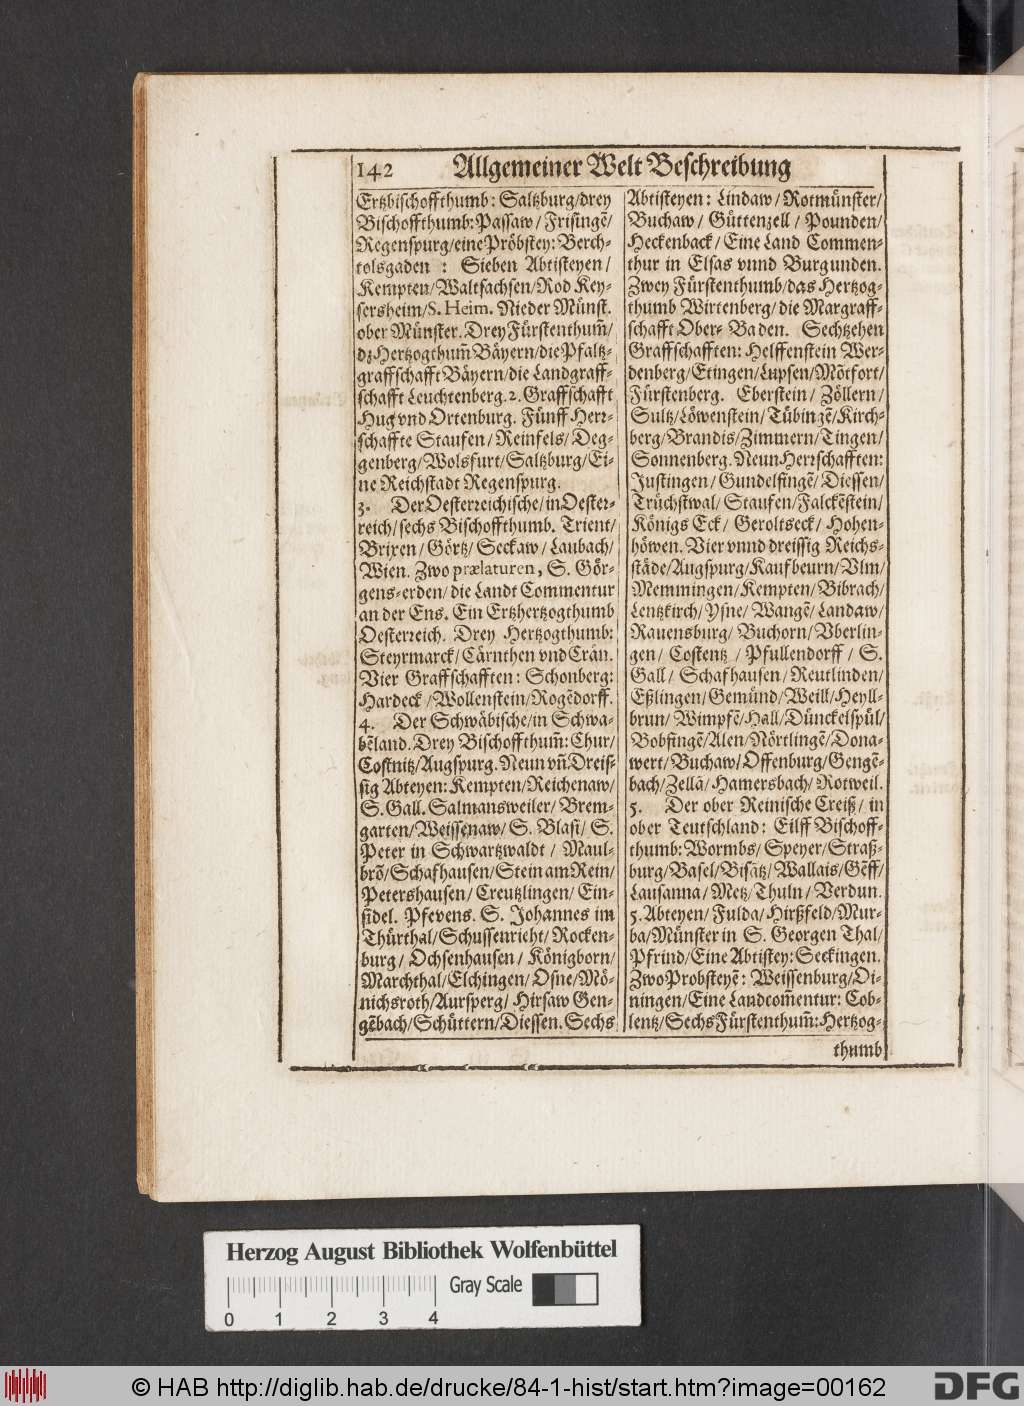 142 Allgemeiner Welt Beschreibung
Ertzbischoffthumb: Saltzburg/drey
Bischoffthumb: Passaw/ Frisingē/
Regenspurg/eine Pröbstey: Berch-
tolsgaden : Sieben Abtisteyen/
Kempten/Waltsachsen/Rod Key-
sersheim/S. Heim. Nieder Münst.
ober Münster. Drey Fürstenthum̄/
dz Hertzogthum̄ Bäyern/die Pfaltz-
graffschafft Bäyern/die Landgraff-
schafft Leuchtenberg. 2. Graffschafft
Hug vnd Ortenburg. Fünff Herr-
schaffte Staufen/ Reinfels/ Deg-
genberg/Wolsfurt/Saltzburg/Ei-
ne Reichstadt Regenspurg.
3. Der Oesterreichische/in Oester-
reich/sechs Bischoffthumb. Trient/
Brixen/ Görtz/ Seckaw/ Laubach/
Wien. Zwo prælaturen, S. Gör-
gens-erden/ die Landt Commentur
an der Ens. Ein Ertzhertzogthumb
Oesterreich. Drey Hertzogthumb:
Steyrmarck/Cärnthen vnd Crän.
Vier Graffschafften: Schonberg:
Hardeck /Wollenstein/Rogēdorff.
4. Der Schwäbische/in Schwa-
bēland. Drey Bischoffthum̄: Chur/
Costnitz/Augspurg. Neun vn̄ Dreis-
sig Abteyen: Kempten/Reichenaw/
S. Gall. Salmansweiler/ Brem-
garten/Weissenaw/ S. Blasi/ S.
Peter in Schwartzwaldt / Maul-
brō/Schafhausen/Stein am Rein/
Petershausen/ Creutzlingen/ Ein-
sidel. Pfevens. S. Johannes im
Thürthal/Schussenrieht/ Rocken-
burg/ Ochsenhausen/ Königborn/
Marchthal/Elchingen/ Osne/Mö-
nichsroth/Aursperg/ Hirsaw Gen-
gēbach/Schüttern/Diessen. Sechs
Abtisteyen: Lindaw/ Rotmünster/
Buchaw/ Güttenzell / Pounden/
Heckenback/ Eine Land Commen-
thur in Elsas vnnd Burgunden.
Zwey Fürstenthumb/das Hertzog-
thumb Wirtenberg/die Margraff-
schafft Ober- Baden. Sechtzehen
Graffschafften: Helffenstein Wer-
denberg/Etingen/Lupfen/Mōtfort/
Fürstenberg. Eberstein/ Zöllern/
Sultz/Löwenstein/Tübingē/Kirch-
berg/Brandis/Zimmern/Tingen/
Sonnenberg. Neun Herrschafften:
Justingen/ Gundelfingē/ Diessen/
Trüchstwal/Staufen/Falckēstein/
Königs Eck/ Geroltseck/ Hohen-
höwen. Vier vnnd dreissig Reichs-
städe/Augspurg/Kaufbeurn/Vlm/
Memmingen/Kempten/Bibrach/
Lentzkirch/Ysne/ Wangē/ Landaw/
Rauensburg/ Buchorn/ Vberlin-
gen/ Costentz / Pfullendorff / S.
Gall/ Schafhausen/ Reutlinden/
Eßlingen/Gemünd/Weill/Heyll-
brun/ Wimpfē/Hall/Dünckelspül/
Bobfingē/Alen/Nörtlingē/Dona-
wert/Buchaw/Offenburg/Gengē-
bach/Zellā/ Hamersbach/Rotweil.
5. Der ober Reinische Creiß/ in
ober Teutschland: Eilff Bischoff-
thumb: Wormbs/ Speyer/Straß-
burg/Basel/Bisātz/Wallais/Gēff/
Lausanna/ Metz/ Thuln/ Verdun.
5. Abteyen/ Fulda/Hirßfeld/Mur-
ba/Münster in S. Georgen Thal/
Pfrind/Eine Abtistey: Seckingen.
Zwo Probsteyē: Weissenburg/Oi-
ningen/Eine Landcom̄entur: Cob-
lentz/Sechs Fürstenthum̄: Hertzog-
thumb
Herzog August Bibliothek Wolfenbüttel
Gray Scale
0 1 2 3 4
© HAB http://diglib.hab.de/drucke/84-1-hist/start.htm?image=00162
DFG